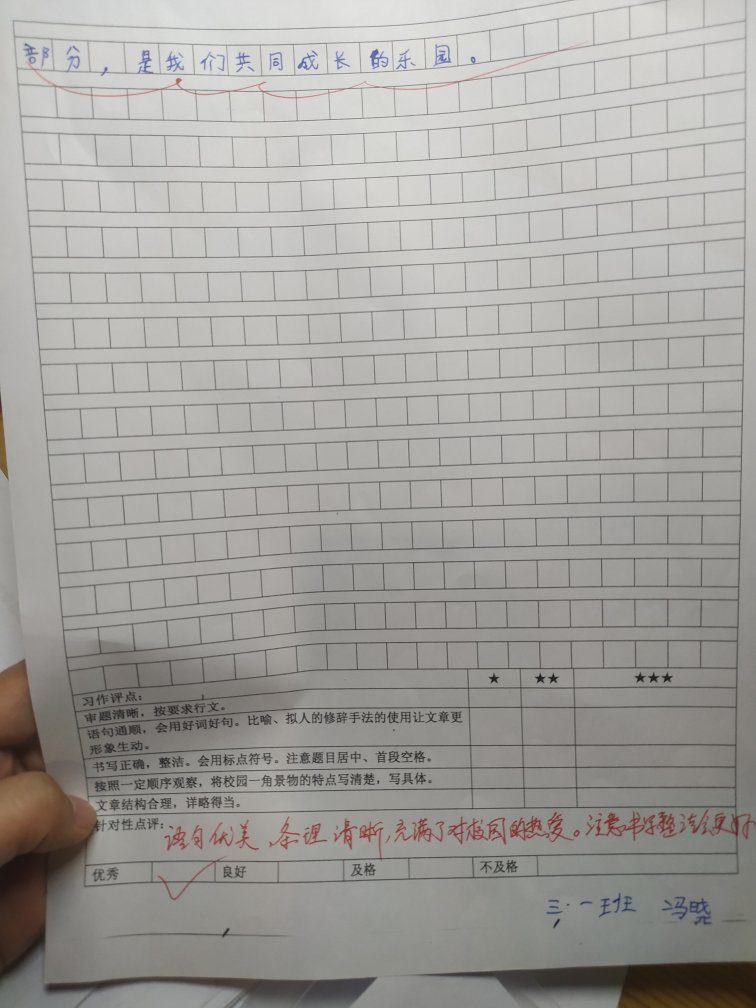 部分，是我们共同成长的乐园。
习作评点： ★ ★★ ★★★
审题清晰，按要求行文。
语句通顺，会用好词好句。比喻、拟人的修辞手法的使用让文章更
形象生动。
书写正确，整洁。会用标点符号。注意题目居中、首段空格。
按照一定顺序观察，将校园一角景物的特点写清楚，写具体。
文章结构合理，详略得当。
针对性点评：语句优美、条理清晰，充满了对校园的热爱。注意书写整洁会更好
优秀 良好 及格 不及格
三.一班 冯晓